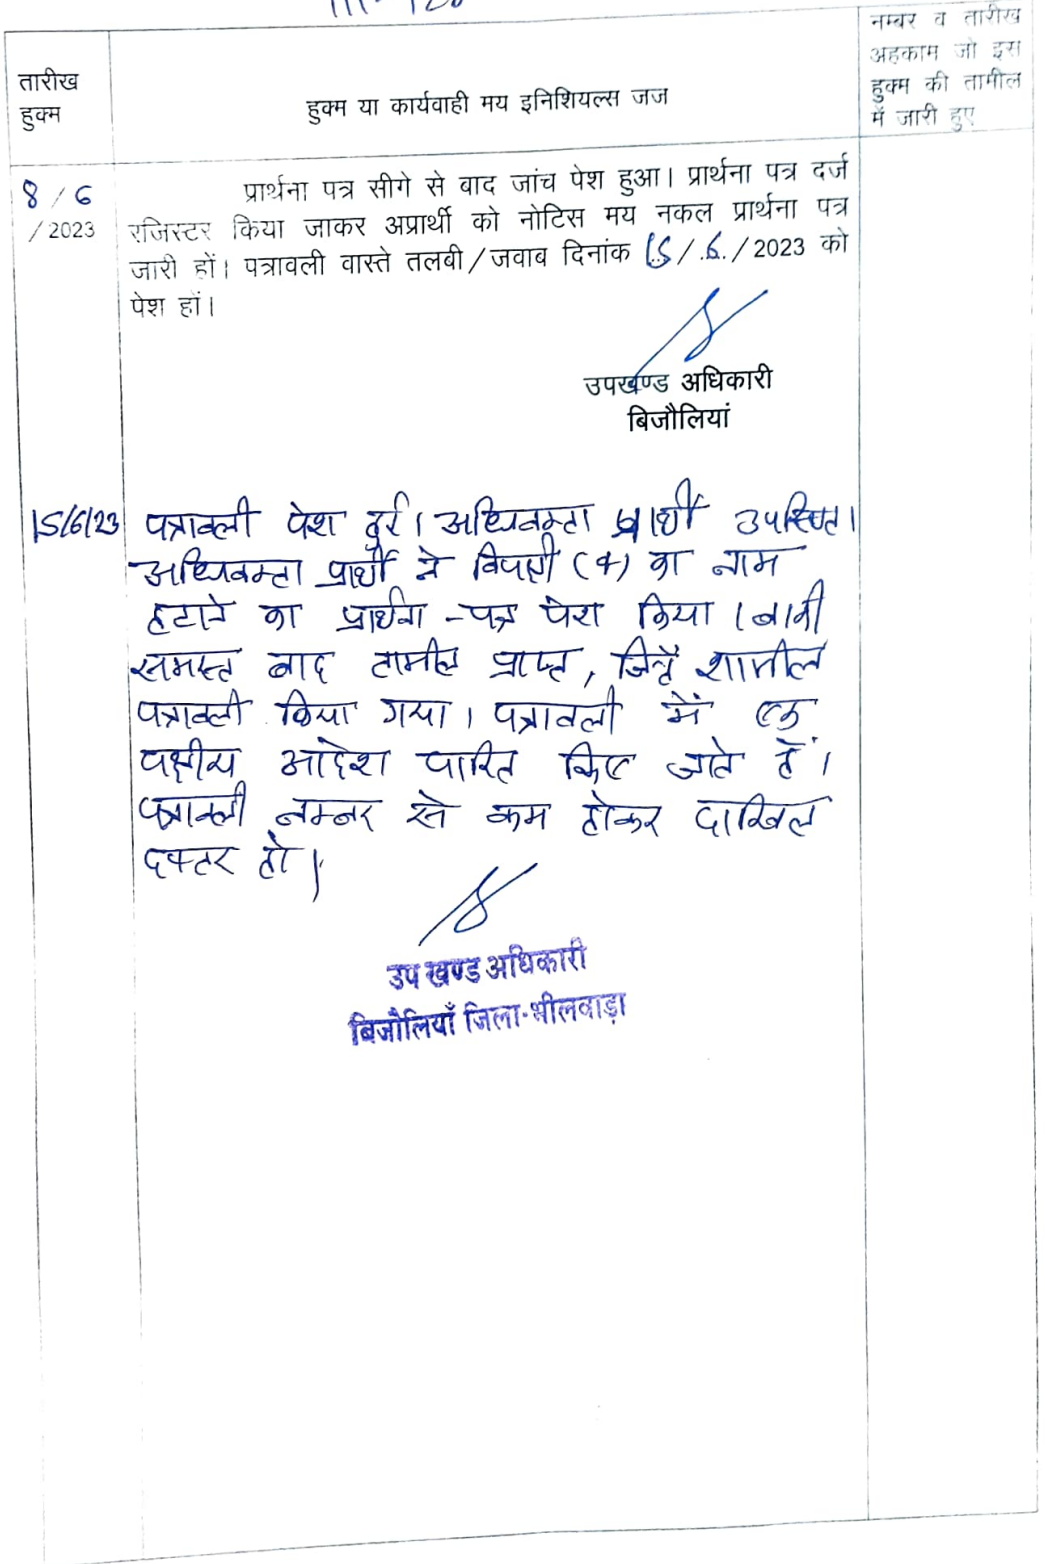 नम्बर व तारीख
अहकाम जो इस
हुक्म की तामील
में जारी हुए
तारीख
हुक्म
हुक्म या कार्यवाही मय इनिशियल्स जज
8/6
/2023
प्रार्थना पत्र सीगे से बाद जांच पेश हुआ। प्रार्थना पत्र दर्ज
रजिस्टर किया जाकर अप्रार्थी को नोटिस मय नकल प्रार्थना पत्र
जारी हों। पत्रावली वास्ते तलबी/जवाब दिनांक 15/.6./2023 को
पेश हों।
उपखण्ड अधिकारी
बिजौलियां
15/6/23 पत्रावली पेश हुई। अधिवक्ता प्रार्थी उपस्थित।
अधिवक्ता प्रार्थी ने विपक्षी (4) का नाम
हटाने का प्रार्थना-पत्र पेश किया। बाकी
समस्त बाद तामील प्राप्त, जिन्हें शामील
पत्रावली किया गया। पत्रावली में एक
पक्षीय आदेश पारित किए जाते हैं।
पत्रावली नम्बर से कम होकर दाखिल
दफ्तर हो।
उप खण्ड अधिकारी
बिजौलियाँ जिला-भीलवाड़ा